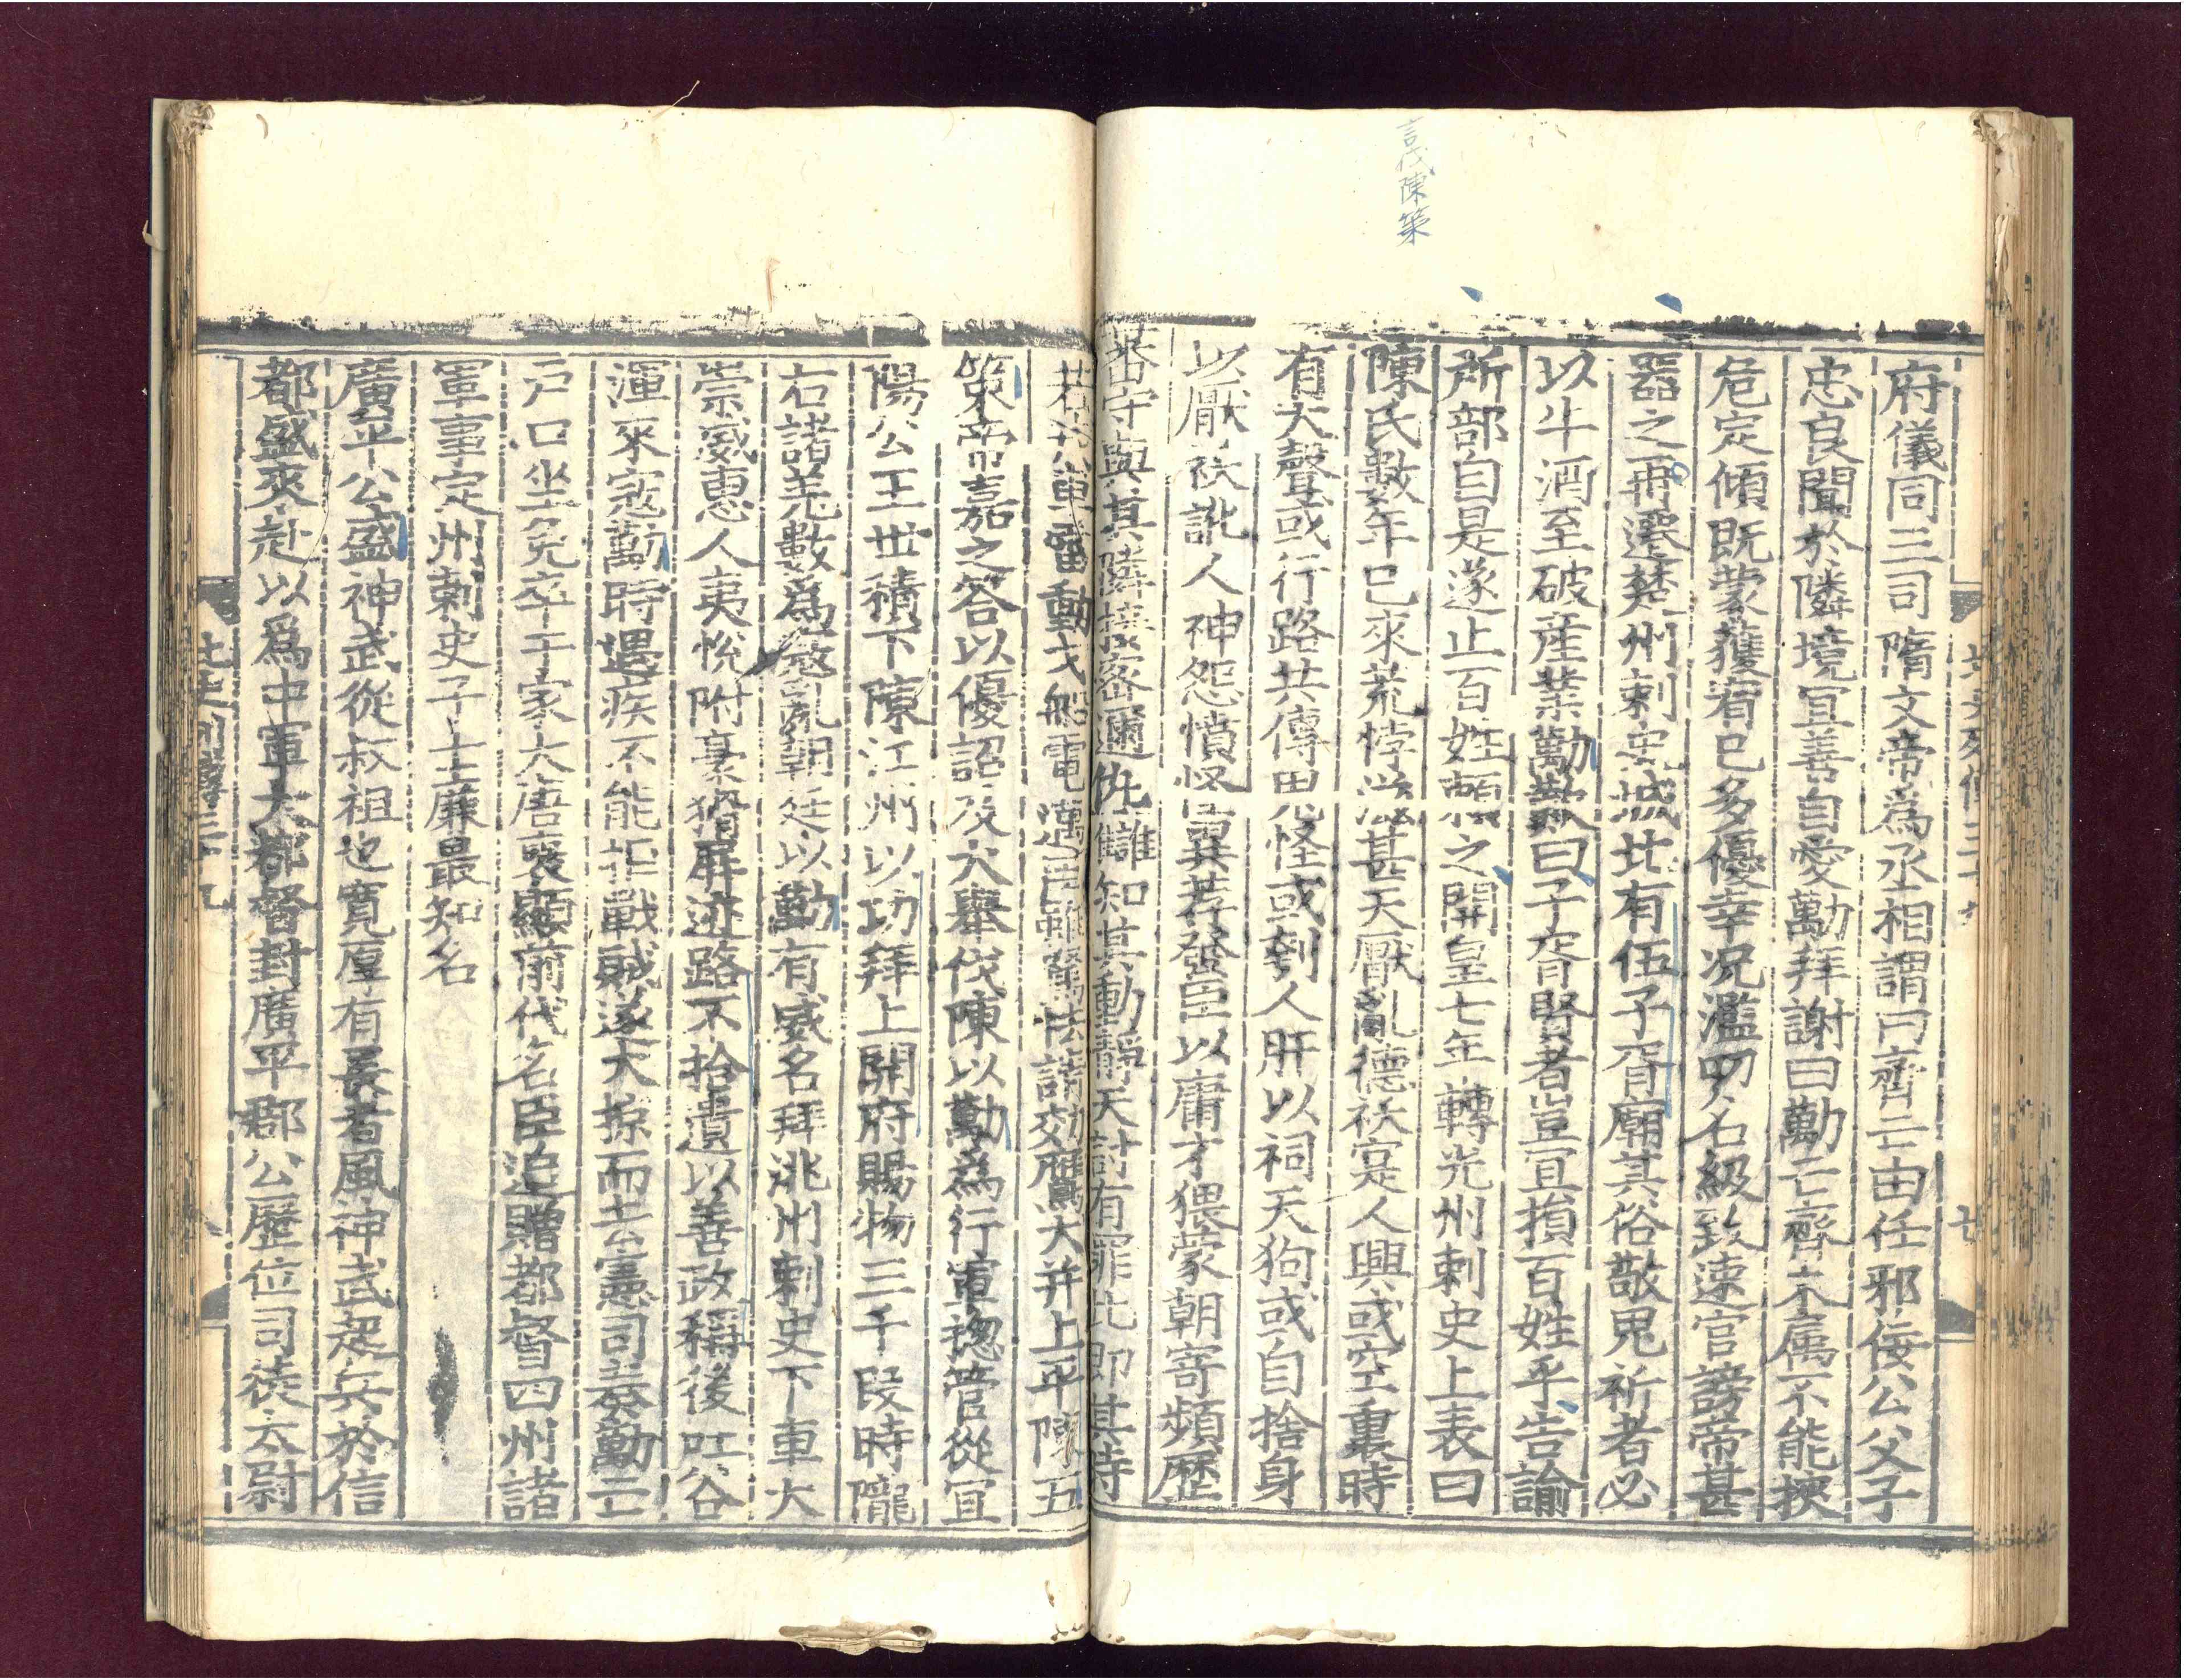 言伐陳策
府儀同三司隋文帝爲丞相謂曰齊亡由任邪佞公父子
忠良聞於隣境宜善自愛勱拜謝曰勱亡齊末属不能扶
危定傾既蒙獲宥已多優幸况濫叨名級致速官謗帝甚
器之再遷楚州刺史城北有伍子胥廟其俗敬鬼祈者必
以牛酒至破産業勱歎曰子胥賢者豈宜損百姓乎告諭
所部自是遂止百姓頼之開皇七年轉光州刺史上表曰
陳氏數年已來荒悖滋甚天厭亂德祅寔人興或空裏時
有大聲或行路共傳鬼怪或刳人肝以祠天狗或自捨身
以厭祅訛人神怨憤怪異荐發臣以庸才猥蒙朝寄頻歷
蕃守與其隣接密邇仇讎知其動靜天討有罪此即其時
若戎車雷動戈船電邁臣雖駑怯請効鷹犬并上平陳五
策帝嘉之答以優詔及大舉伐陳以勱爲行軍揔管從宜
陽公王世積下陳江州以功拜上開府賜物三千段時隴
右諸羌數爲寇亂朝廷以勱有威名拜洮州刺史下車大
崇威惠人夷悅附豪猾屏迹路不拾遺以善政稱後吐谷
渾來寇勱時遇疾不能拒戰賊遂大掠而去憲司奏勱亡
戶口坐免卒于家大唐襃顯前代名臣追贈都督四州諸
軍事定州刺史子士廉最知名
廣平公盛神武從叔祖也寛厚有長者風神武起兵於信
都盛來赴以爲中軍大都督封廣平郡公歷位司徒太尉
北史列傳三十九